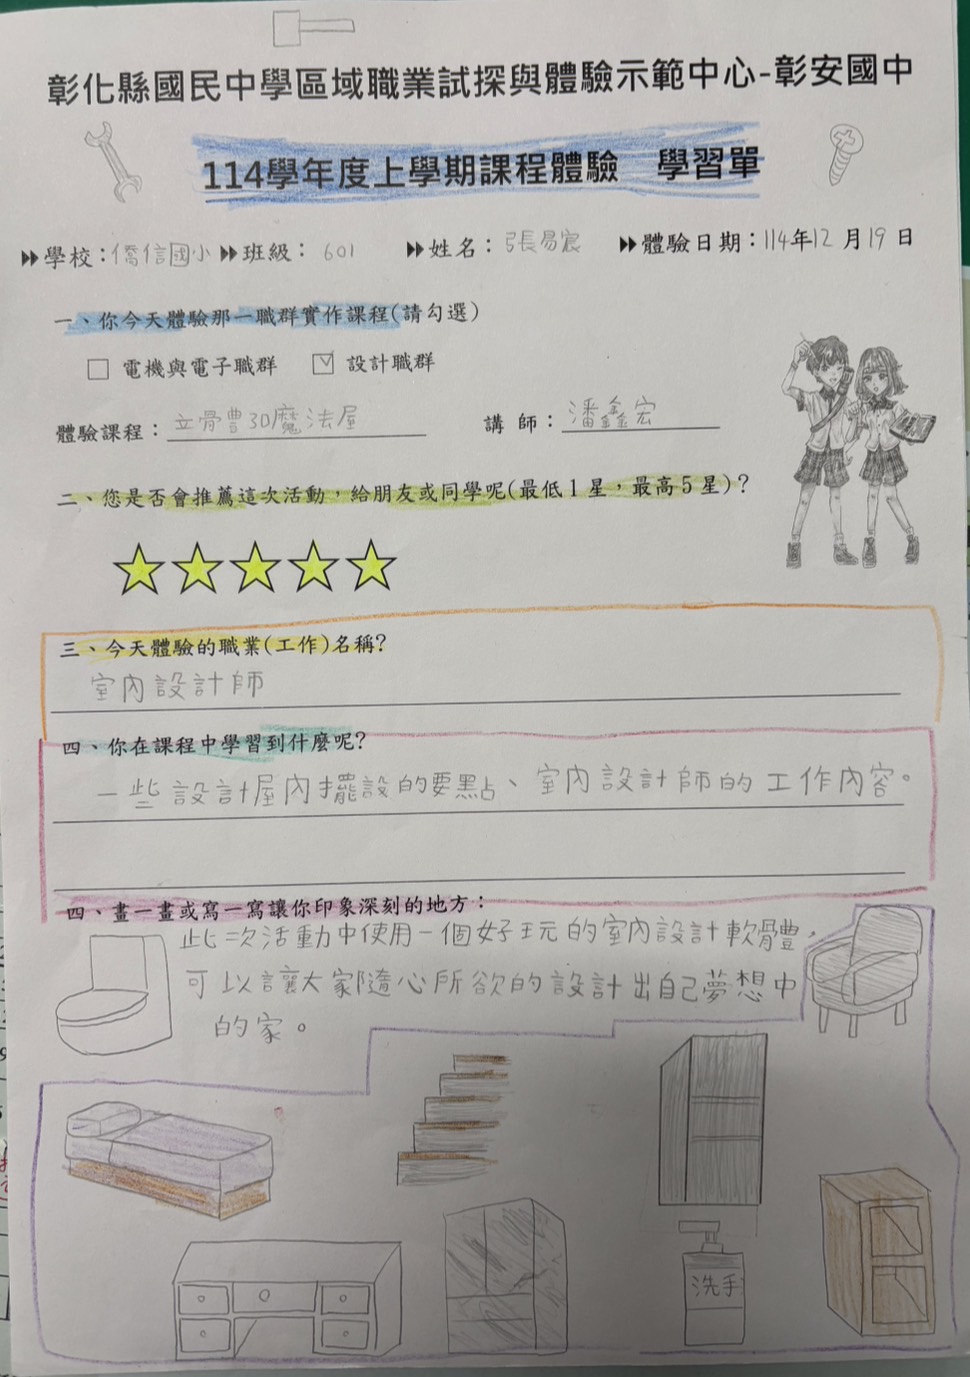 彰化縣國民中學區域職業試探與體驗示範中心-彰安國中
114學年度上學期課程體驗 學習單
學校：僑信國小 班級：601 姓名：張易宸 體驗日期：114年12月19日
一、你今天體驗那一職群實作課程(請勾選)
電機與電子職群 設計職群
體驗課程：立體3D魔法屋 講師：潘鑫宏
二、您是否會推薦這次活動，給朋友或同學呢(最低1星，最高5星)？
三、今天體驗的職業(工作)名稱?
室內設計師
四、你在課程中學習到什麼呢?
一些設計屋內擺設的要點、室內設計師的工作內容。
四、畫一畫或寫一寫讓你印象深刻的地方：
此次活動中使用一個好玩的室內設計軟體，
可以讓大家隨心所欲的設計出自己夢想中
的家。
洗手